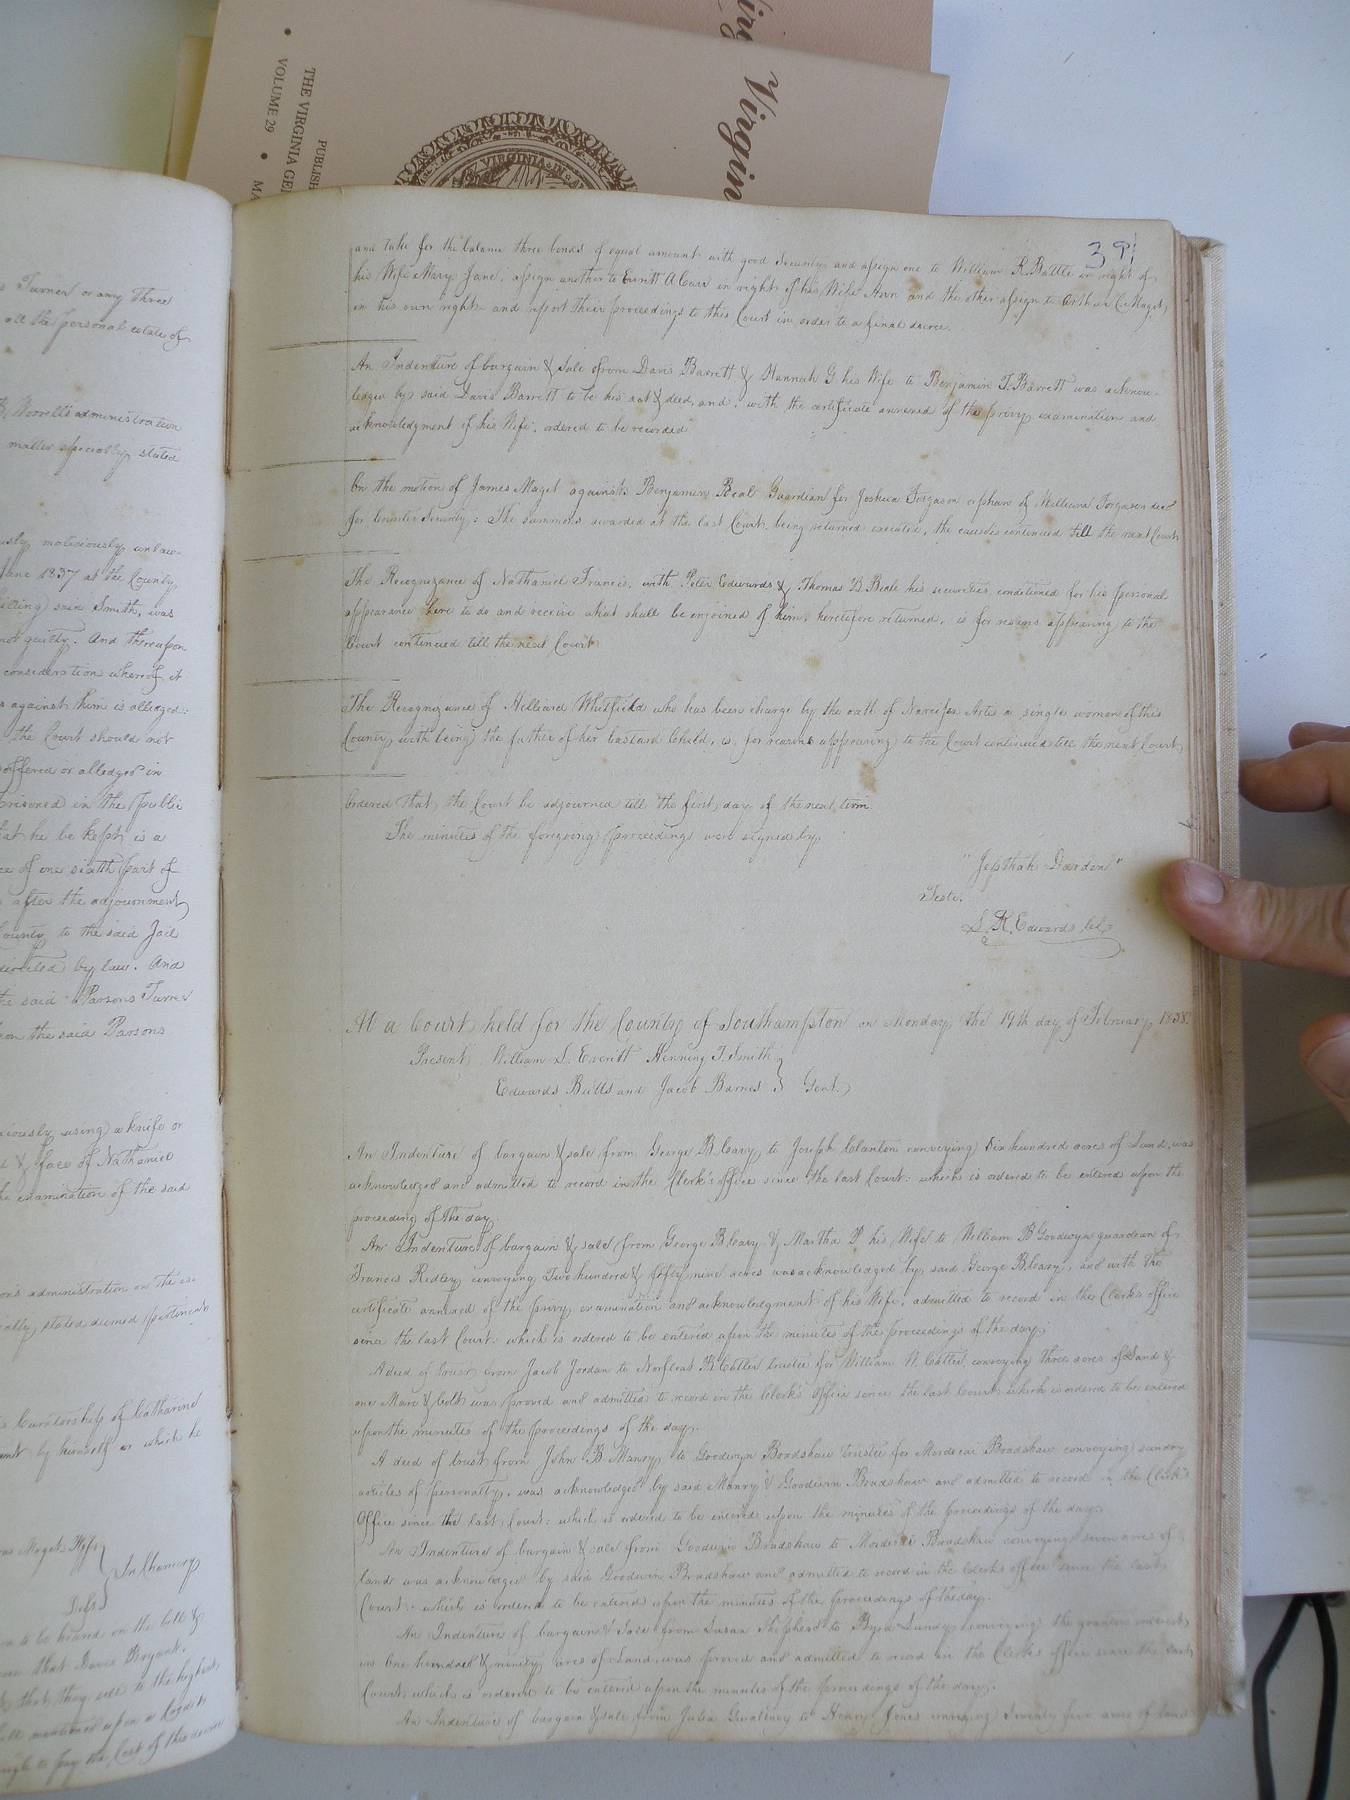 Virgin
PUBLISH
THE VIRGINIA GEN
VOLUME 29
MA
VIRGINIA IN
391
s Turner or any three
all the personal estate of
Worrell's administration
matter specially stated
usly maliciously unlaw-
June 1837 at the County
said Smith, was
not guilty. And thereupon
consideration whereof it
s against him is alledged:
the Court should not
offered or alledged in
prisoned in the public
at he be kept is a
ce of one sixth part of
after the adjournment
County to the said Jail
directed by law. And
the said Parsons Turner
on the said Parsons
iciously using a knife or
& face of Nathaniel
he examination of the said
ons administration on the es-
ally stated deemed pertinent
s Curatorship of Catharine
ent by himself or which he
as Maget Wife
In Chancery
Defts
to be heard on the bill &
that Davis Bryant,
that they sell to the highest
mentioned upon a Credit
to pay the Cost of this decree
and take for the balance three bonds of equal amount with good security and assign one to William R. Battle in right of
his Wife Mary Jane, assign another to Everitt A Carr in right of his Wife Ann and the other assign to Arthur C. Maget
in his own right - and report their proceedings to this Court in order to a final decree.
An Indenture of bargain & Sale from Davis Barrett & Hannah G his Wife to Benjamin T. Barrett was acknow-
ledged by said Davis Barrett to be his act & deed, and, with the certificate annexed of the privy examination and
acknowledgment of his Wife, ordered to be recorded
On the motion of James Maget against Benjamin Beal Guardian for Joshua Forgason orphan of William Forgason decd
for Counter Security: The summons awarded at the last Court, being returned executed, the cause is continued till the next Court
The Recognizance of Nathaniel Francis, with Peter Edwards & Thomas B. Beale his securities, conditioned for his personal
appearance here to do and receive what shall be enjoined of him, heretofore returned, is for reasons appearing to the
Court continued till the next Court
The Recognizance of Hilliard Whitfield who has been charge by the oath of Narcissa Artis a single woman of this
County with being the father of her bastard Child, is, for reasons appearing to the Court continued till the next Court
Ordered that the Court be adjourned till the first day of the next term
The minutes of the foregoing proceedings were signed by
"Jepthah Darden"
Teste.
L. R. Edwards Cl
At a Court held for the County of Southampton on Monday the 19th day of February 1838.
Present William L. Everitt Henning T. Smith
Edwards Butts and Jacob Barnes } Gent.
An Indenture of bargain & sale from George B. Cary to Joseph Clanton conveying Six hundred acres of Land, was
acknowledged and admitted to record in the Clerk's office since the last Court: which is ordered to be entered upon the
proceeding of the day
An Indenture of bargain & sale from George B. Cary & Martha P his Wife to William B Goodwyn guardian of
Francis Ridley conveying Two hundred & fifty nine acres was acknowledged by said George B. Cary, and with the
certificate annexed of the privy examination and acknowledgment of his Wife, admitted to record in the Clerk's office
since the last Court: which is ordered to be entered upon the minutes of the proceedings of the day
A deed of trust from Jacob Jordan to Norfleet R Cotten trustee for William W. Cotten, conveying three acres of Land &
one Mare & Colt was proved and admitted to record in the Clerk's Office since the last Court which is ordered to be entered
upon the minutes of the proceedings of the day.
A deed of trust from John B Manry to Goodwyn Bradshaw trustee for Mordecai Bradshaw conveying sundry
articles of personalty, was acknowledged by said Manry & Goodwin Bradshaw and admitted to record in the Clerk's
Office since the last Court: which is ordered to be entered upon the minutes of the proceedings of the day
An Indenture of bargain & sale from Goodwin Bradshaw to Mordecai Bradshaw conveying seven acres of
land was acknowledged by said Goodwin Bradshaw and admitted to record in the Clerks office since the last
Court: which is ordered to be entered upon the minutes of the proceedings of the day.
An Indenture of bargain & Sale from Susan Shepherd to Byrd Dundy conveying the grantors interest
in One hundred & ninety acres of Land was proved and admitted to record in the Clerks office since the last
Court, which is ordered to be entered upon the minutes of the proceedings of the day.
An Indenture of bargain & sale from Julia Gwaltney to Henry Jones conveying Twenty five acres of land